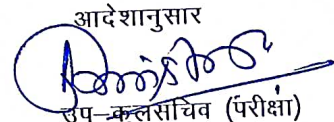 आदेशानुसार
उप–कुलसचिव (परीक्षा)